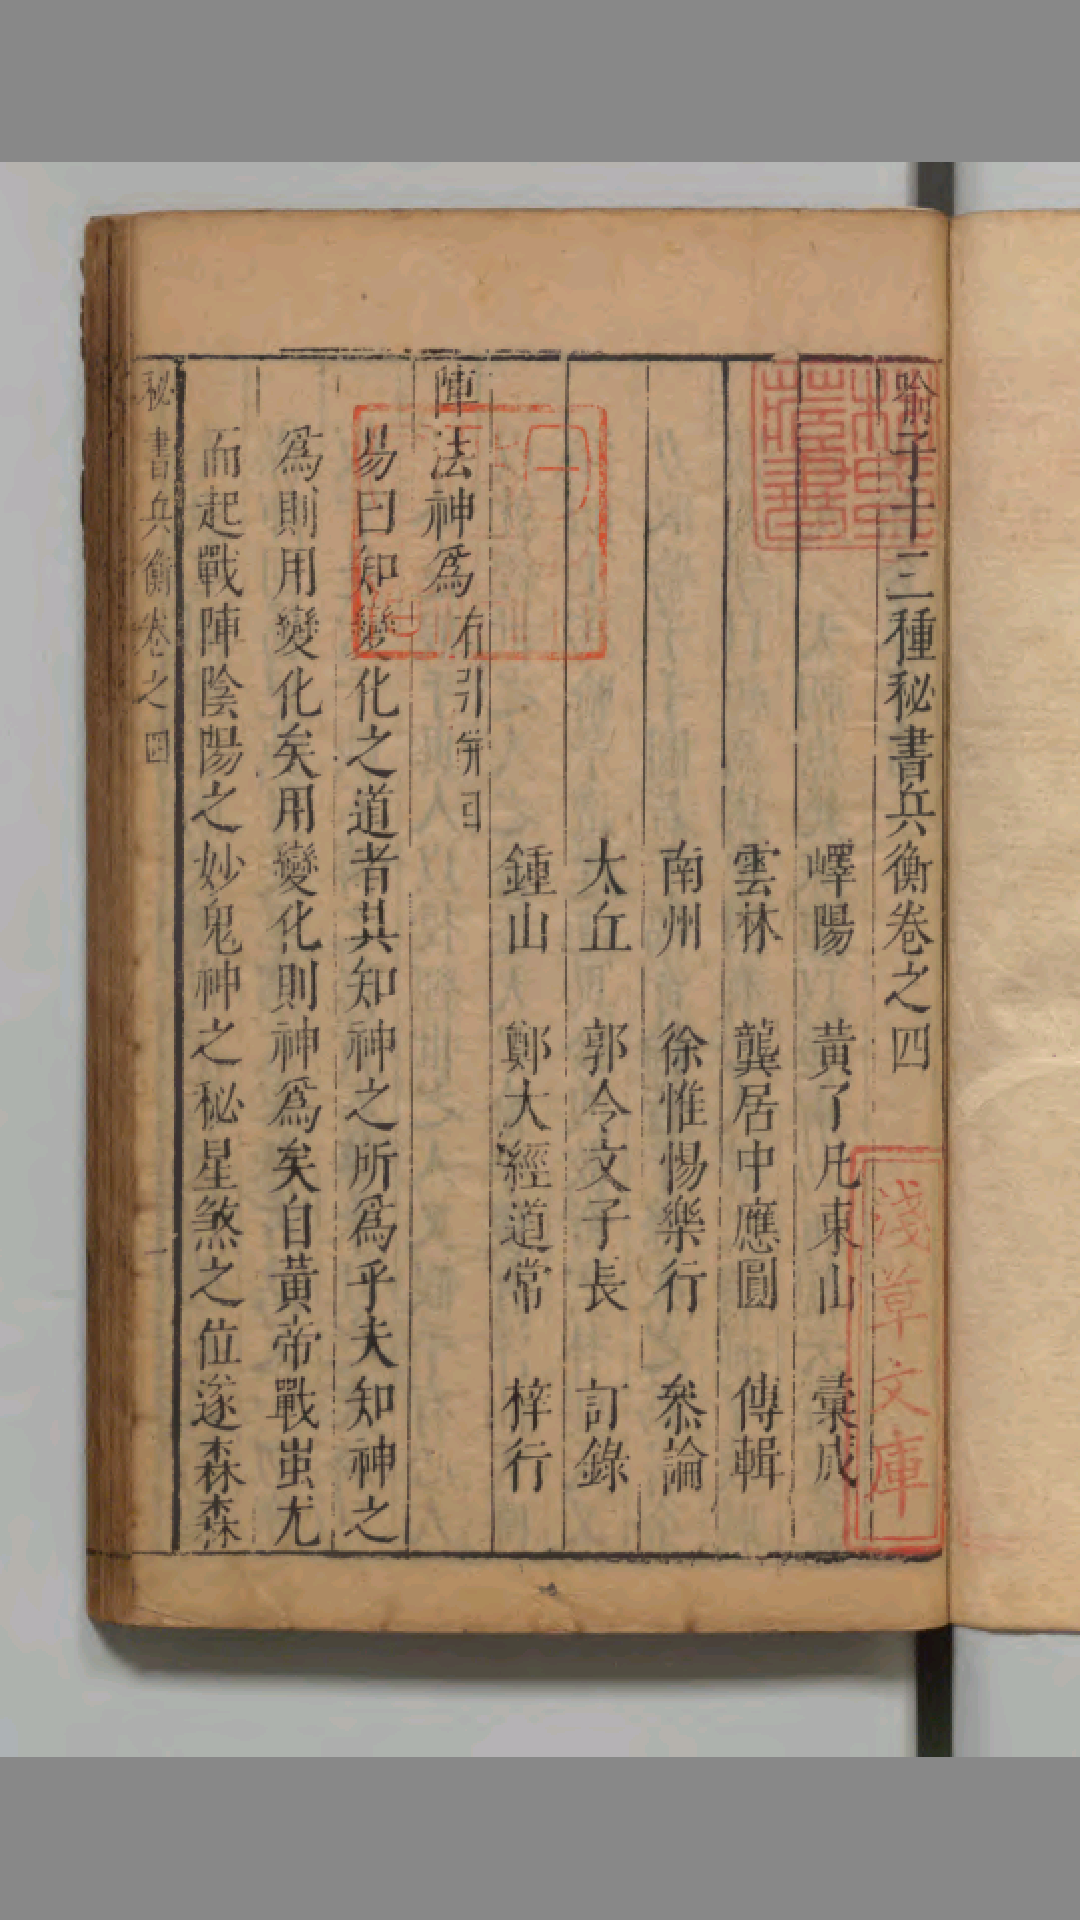 喻子十三種秘書兵衡卷之四
嶧陽　黃了凡東山　彙成
雲林　龔居中應圓　傳輯
南州　徐惟惕樂行　叅論
太丘　郭令文子長　訂錄
鍾山　鄭大經道常　梓行
陣法神爲有引併目
易曰知變化之道者其知神之所爲乎夫知神之
爲則用變化矣用變化則神爲矣自黃帝戰蚩尤
而起戰陣陰陽之妙鬼神之秘星煞之位遂森森
秘書兵衡卷之四　一
淺草文庫